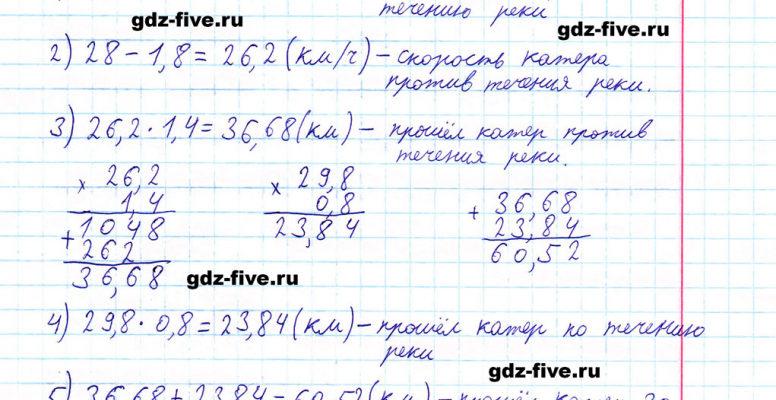 течению реки
gdz-five.ru
gdz-five.ru
2) 28 - 1,8 = 26,2 (км/ч) - скорость катера
против течения реки.
3) 26,2 · 1,4 = 36,68 (км) - прошёл катер против
течения реки.
× 26,2
1,4
+ 1048
262
36,68
× 29,8
0,8
23,84
+ 36,68
23,84
60,52
gdz-five.ru
4) 29,8 · 0,8 = 23,84 (км) - прошёл катер по течению
реки
gdz-five.ru
5) 36,68 + 23,84 = 60,52 (км) - прошёл катер за